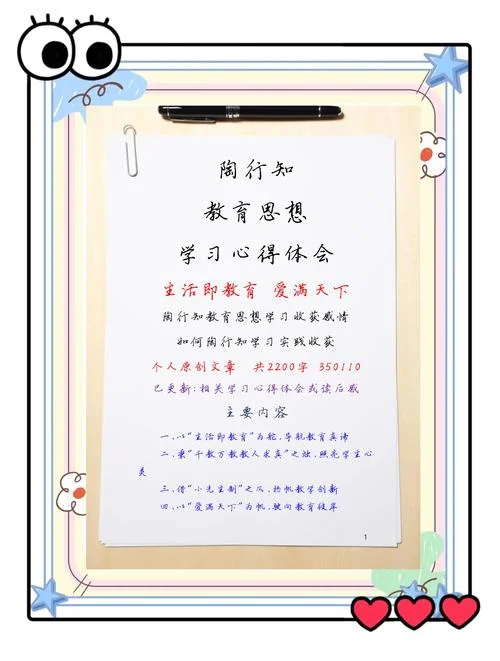 陶行知
教育思想
学习心得体会
生活即教育 爱满天下
陶行知教育思想学习收获感悟
如何陶行知学习实践收获
个人原创文章 共2200字 350110
已更新:相关学习心得体会或读后感
主要内容
一、以“生活即教育”为舵,导航教育真谛
二、秉“千教万教教人求真”之烛,照亮学生心
灵
三、借“小先生制”之风,扬帆教学创新
四、以“爱满天下”为帆,驶向教育彼岸
1